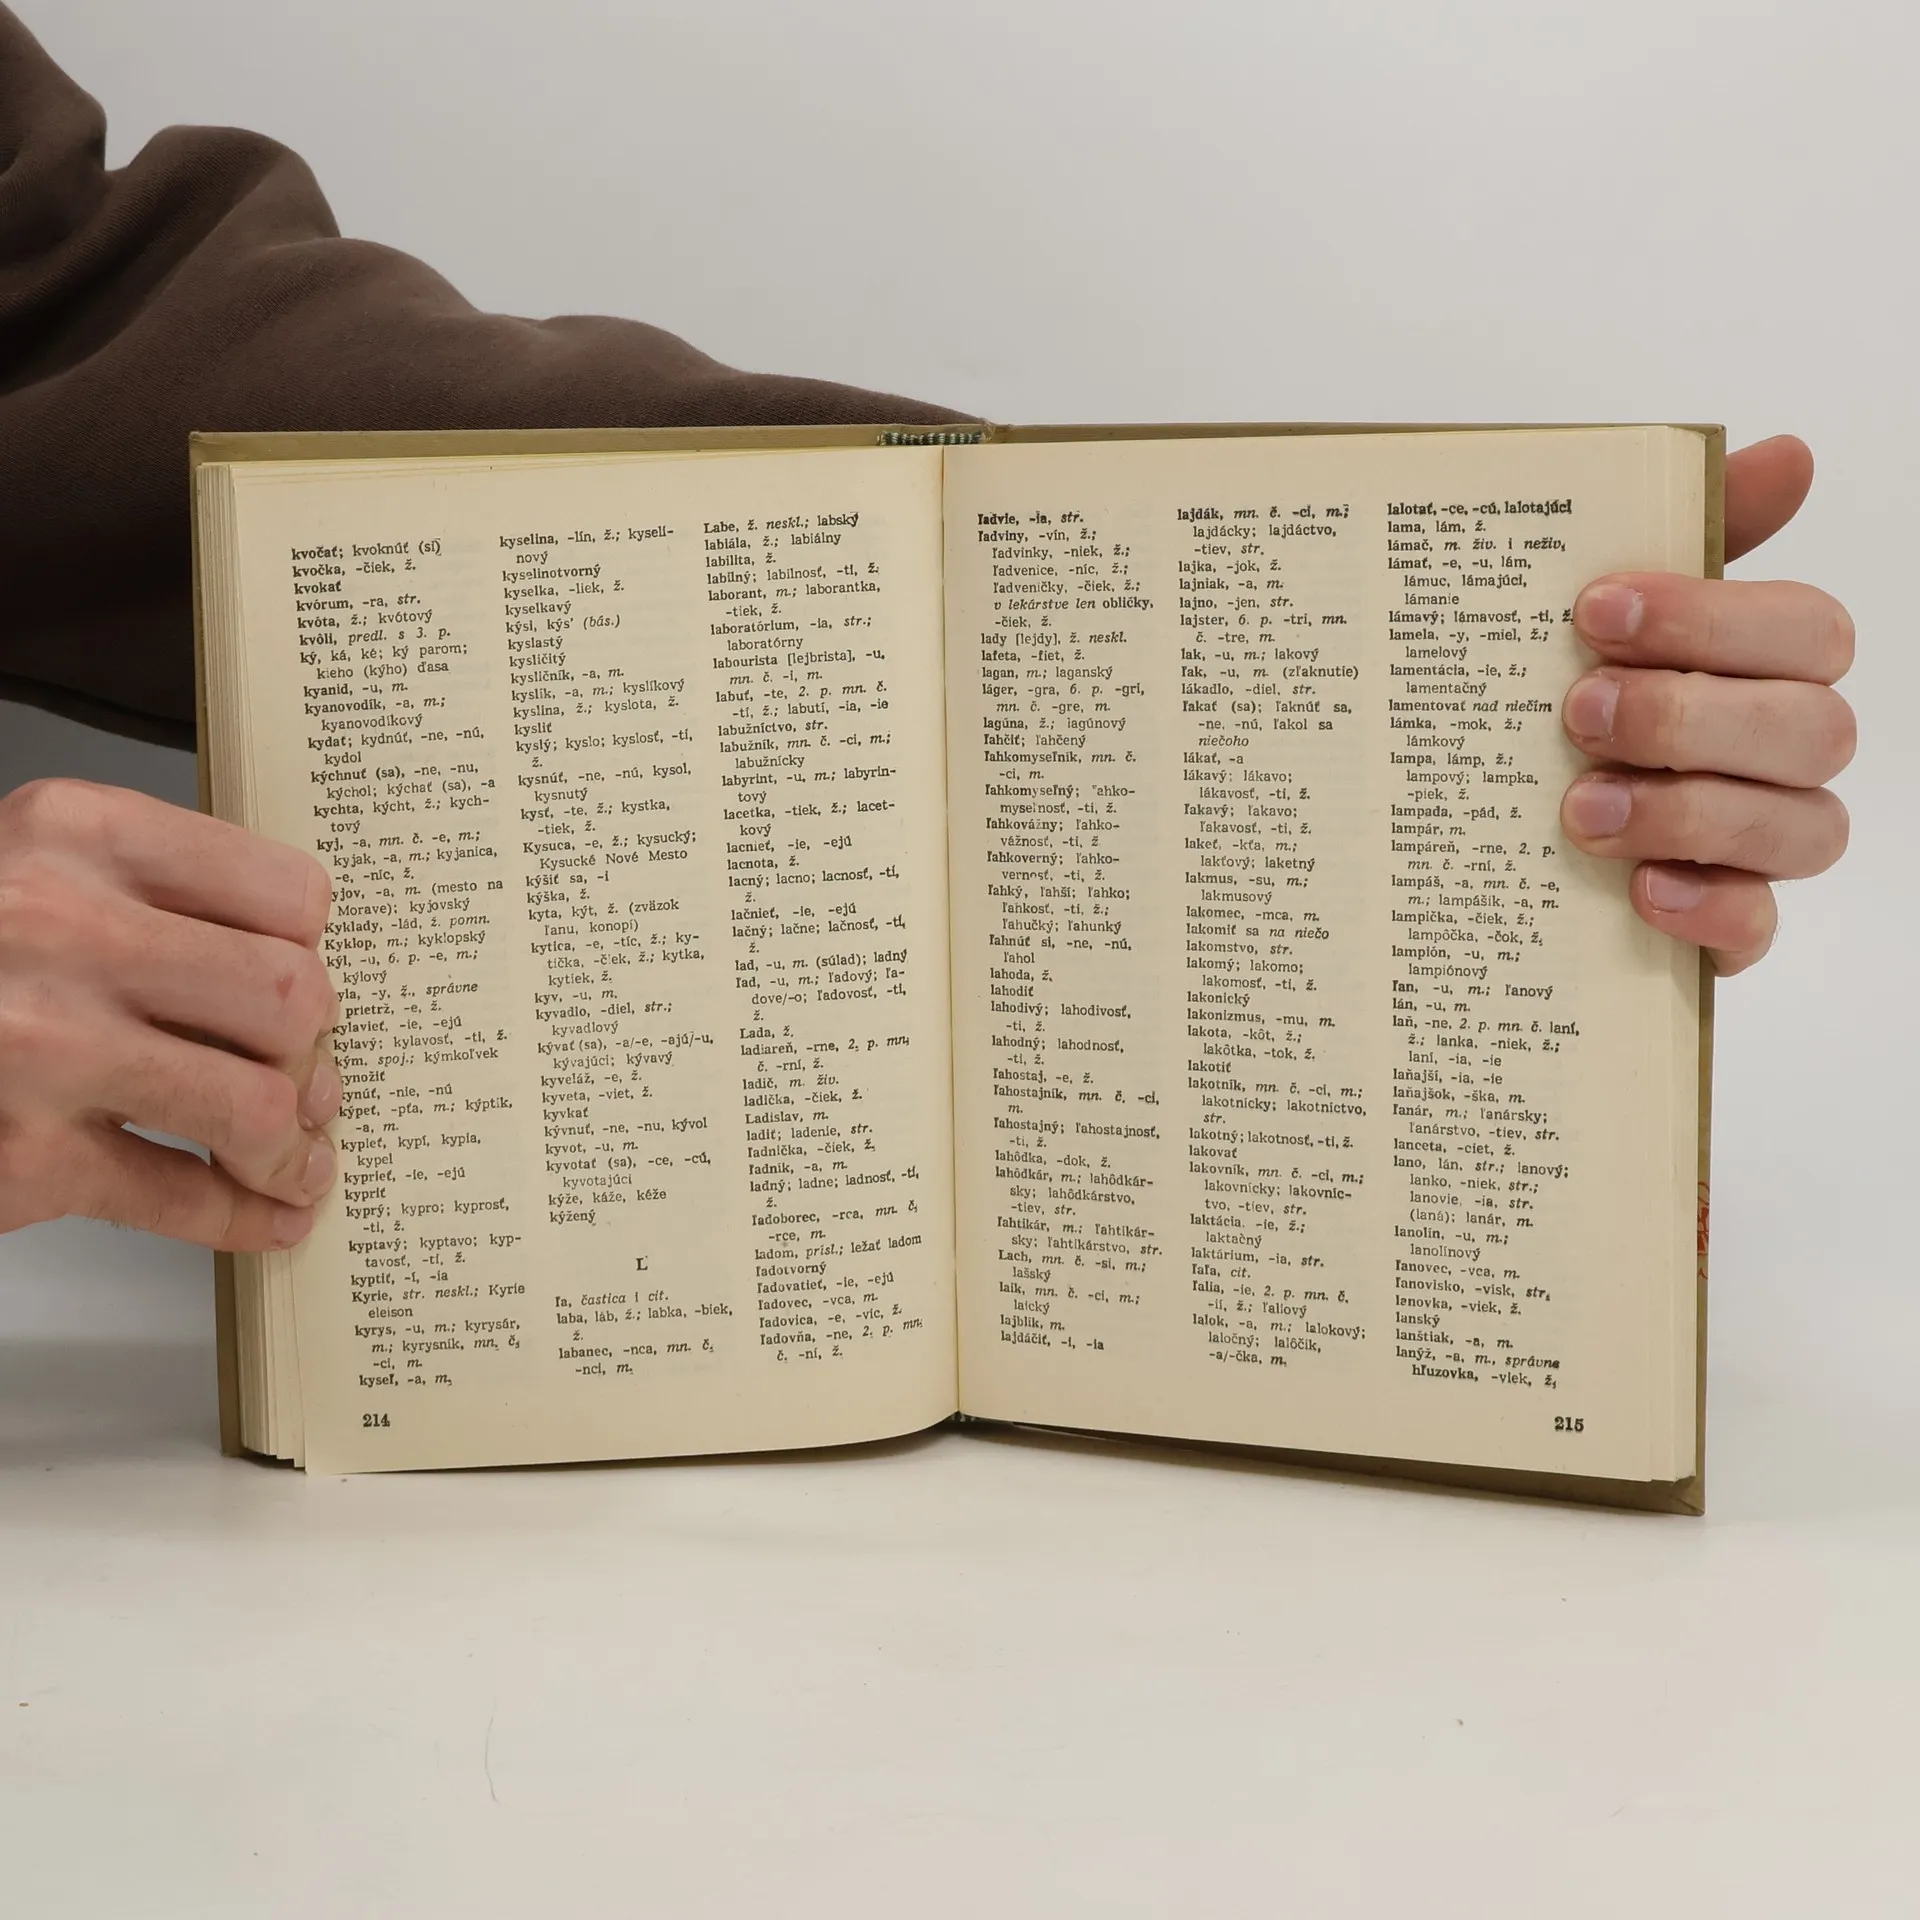 kvočať; kvoknúť (si)
kvočka, -čiek, ž.
kvokať
kvórum, -ra, str.
kvóta, ž.; kvótový
kvôli, predl. s 3. p.
ký, ká, ké; ký parom;
kieho (kýho) ďasa
kyanid, -u, m.
kyanovodík, -a, m.;
kyanovodíkový
kydať; kydnúť, -ne, -nú,
kydol
kýchnuť (sa), -ne, -nu,
kýchol; kýchať (sa), -a
kychta, kýcht, ž.; kych-
tový
kyj, -a, mn. č. -e, m.;
kyjak, -a, m.; kyjanica,
-e, -níc, ž.
yjov, -a, m. (mesto na
Morave); kyjovský
Kyklady, -lád, ž. pomn.
Kyklop, m.; kyklopský
kýl, -u, 6. p. -e, m.;
kýlový
yla, -y, ž., správne
prietrž, -e, ž.
kylavieť, -ie, -ejú
kylavý; kylavosť, -ti, ž.
kým, spoj.; kýmkoľvek
kynožiť
kynúť, -nie, -nú
kýpeť, -pťa, m.; kýptik,
-a, m.
kypieť, kypí, kypia,
kypel
kyprieť, -ie, -ejú
kypriť
kyprý; kypro; kyprosť,
-ti, ž.
kyptavý; kyptavo; kyp-
tavosť, -ti, ž.
kyptiť, -í, -ia
Kyrie, str. neskl.; Kyrie
eleison
kyrys, -u, m.; kyrysár,
m.; kyrysník, mn. č.
-ci, m.
kyseľ, -a, m.
214
kyselina, -lín, ž.; kyseli-
nový
kyselinotvorný
kyselka, -liek, ž.
kyselkavý
kýsi, kýs' (bás.)
kyslastý
kysličitý
kysličník, -a, m.
kyslík, -a, m.; kyslíkový
kyslina, ž.; kyslota, ž.
kysliť
kyslý; kyslo; kyslosť, -ti,
ž.
kysnúť, -ne, -nú, kysol,
kysnutý
kysť, -te, ž.; kystka,
-tiek, ž.
Kysuca, -e, ž.; kysucký;
Kysucké Nové Mesto
kýšiť sa, -i
kýška, ž.
kyta, kýt, ž. (zväzok
ľanu, konopí)
kytica, -e, -tíc, ž.; ky-
tička, -čiek, ž.; kytka,
kytiek, ž.
kyv, -u, m.
kyvadlo, -diel, str.;
kyvadlový
kývať (sa), -a/-e, -ajú/-u,
kývajúci; kývavý
kyveláž, -e, ž.
kyveta, -viet, ž.
kyvkať
kývnuť, -ne, -nu, kývol
kyvot, -u, m.
kyvotať (sa), -ce, -cú,
kyvotajúci
kýže, káže, kéže
kýžený
Ľ
ľa, častica i cit.
laba, láb, ž.; labka, -biek,
ž.
labanec, -nca, mn. č.
-nci, m.
Labe, ž. neskl.; labský
labiála, ž.; labiálny
labilita, ž.
labilný; labilnosť, -ti, ž.
laborant, m.; laborantka,
-tiek, ž.
laboratórium, -ia, str.;
laboratórny
labourista [lejbrista], -u,
mn. č. -i, m.
labuť, -te, 2. p. mn. č.
-tí, ž.; labutí, -ia, -ie
labužníctvo, str.
labužník, mn. č. -ci, m.;
labužnícky
labyrint, -u, m.; labyrin-
tový
lacetka, -tiek, ž.; lacet-
kový
lacnieť, -ie, -ejú
lacnota, ž.
lacný; lacno; lacnosť, -ti,
ž.
lačnieť, -ie, -ejú
lačný; lačne; lačnosť, -ti,
ž.
lad, -u, m. (súlad); ladný
ľad, -u, m.; ľadový; ľa-
dove/-o; ľadovosť, -ti,
ž.
Lada, ž.
ladiareň, -rne, 2. p. mn.
č. -rní, ž.
ladič, m. živ.
ladička, -čiek, ž.
Ladislav, m.
ladiť; ladenie, str.
ľadnička, -čiek, ž.
ľadník, -a, m.
ladný; ladne; ladnosť, -ti,
ž.
ľadoborec, -rca, mn. č.
-rce, m.
ladom, prísl.; ležať ladom
ľadotvorný
ľadovatieť, -ie, -ejú
ľadovec, -vca, m.
ľadovica, -e, -víc, ž.
ľadovňa, -ne, 2. p. mn.
č. -ní, ž.
ľadvie, -ia, str.
ľadviny, -vín, ž.;
ľadvinky, -niek, ž.;
ľadvenice, -níc, ž.;
ľadveničky, -čiek, ž.;
v lekárstve len obličky,
-čiek, ž.
lady [lejdy], ž. neskl.
lafeta, -fiet, ž.
lagan, m.; laganský
láger, -gra, 6. p. -gri,
mn. č. -gre, m.
lagúna, ž.; lagúnový
ľahčiť; ľahčený
ľahkomyseľník, mn. č.
-ci, m.
ľahkomyseľný; ľahko-
myseľnosť, -ti, ž.
ľahkovážny; ľahko-
vážnosť, -ti, ž
ľahkoverný; ľahko-
vernosť, -ti, ž.
ľahký, ľahší; ľahko;
ľahkosť, -ti, ž.;
ľahučký; ľahunký
ľahnúť si, -ne, -nú,
ľahol
lahoda, ž.
lahodiť
lahodivý; lahodivosť,
-ti, ž.
lahodný; lahodnosť,
-ti, ž.
ľahostaj, -e, ž.
ľahostajník, mn. č. -ci,
m.
ľahostajný; ľahostajnosť,
-ti, ž.
lahôdka, -dok, ž.
lahôdkár, m.; lahôdkár-
sky; lahôdkárstvo,
-tiev, str.
ľahtikár, m.; ľahtikár-
sky; ľahtikárstvo, str.
Lach, mn. č. -si, m.;
lašský
laik, mn. č. -ci, m.;
laický
lajblík, m.
lajdáčiť, -i, -ia
lajdák, mn. č. -ci, m.;
lajdácky; lajdáctvo,
-tiev, str.
lajka, -jok, ž.
lajniak, -a, m.
lajno, -jen, str.
lajster, 6. p. -tri, mn.
č. -tre, m.
lak, -u, m.; lakový
ľak, -u, m. (zľaknutie)
lákadlo, -diel, str.
ľakať (sa); ľaknúť sa,
-ne, -nú, ľakol sa
niečoho
lákať, -a
lákavý; lákavo;
lákavosť, -ti, ž.
ľakavý; ľakavo;
ľakavosť, -ti, ž.
lakeť, -kťa, m.;
lakťový; laketný
lakmus, -su, m.;
lakmusový
lakomec, -mca, m.
lakomiť sa na niečo
lakomstvo, str.
lakomý; lakomo;
lakomosť, -ti, ž.
lakonický
lakonizmus, -mu, m.
lakota, -kôt, ž.;
lakôtka, -tok, ž.
lakotiť
lakotník, mn. č. -ci, m.;
lakotnícky; lakotníctvo,
str.
lakotný; lakotnosť, -ti, ž.
lakovať
lakovník, mn. č. -ci, m.;
lakovnícky; lakovníc-
tvo, -tiev, str.
laktácia, -ie, ž.;
laktačný
laktárium, -ia, str.
ľaľa, cit.
ľalia, -ie, 2. p. mn. č.
-ií, ž.; ľaliový
lalok, -a, m.; lalokový;
laločný; lalôčik,
-a/-čka, m.
lalotať, -ce, -cú, lalotajúci
lama, lám, ž.
lámač, m. živ. i neživ.
lámať, -e, -u, lám,
lámuc, lámajúci,
lámanie
lámavý; lámavosť, -ti, ž.
lamela, -y, -miel, ž.;
lamelový
lamentácia, -ie, ž.;
lamentačný
lamentovať nad niečím
lámka, -mok, ž.;
lámkový
lampa, lámp, ž.;
lampový; lampka,
-piek, ž.
lampada, -pád, ž.
lampár, m.
lampáreň, -rne, 2. p.
mn. č. -rní, ž.
lampáš, -a, mn. č. -e,
m.; lampášik, -a, m.
lampička, -čiek, ž.;
lampôčka, -čok, ž.
lampión, -u, m.;
lampiónový
ľan, -u, m.; ľanový
lán, -u, m.
laň, -ne, 2. p. mn. č. laní,
ž.; lanka, -niek, ž.;
laní, -ia, -ie
laňajší, -ia, -ie
laňajšok, -ška, m.
ľanár, m.; ľanársky;
ľanárstvo, -tiev, str.
lanceta, -ciet, ž.
lano, lán, str.; lanový;
lanko, -niek, str.;
lanovie, -ia, str.
(laná); lanár, m.
lanolín, -u, m.;
lanolínový
ľanovec, -vca, m.
ľanovisko, -vísk, str.
lanovka, -viek, ž.
lanský
lanštiak, -a, m.
lanýž, -a, m., správne
hľuzovka, -viek, ž.
215